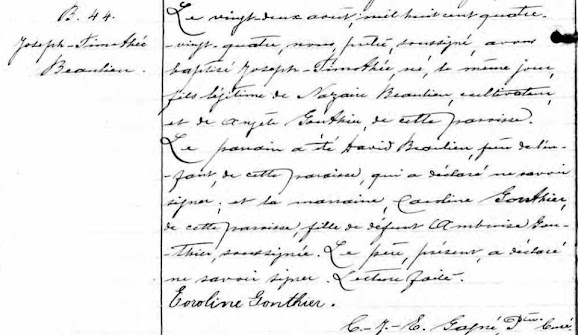 B. 44.
Joseph-Timothée
Beaulieu.
Le vingt-deux août, mil huit cent quatre-
-vingt-quatre, nous, prêtre, soussigné, avons
baptisé Joseph-Timothée, né, le même jour,
fils légitime de Nazaire Beaulieu, cultivateur,
et de Angèle Gonthier, de cette paroisse.
Le parrain a été David Beaulieu, père de l'en-
fant, de cette paroisse, qui a déclaré ne savoir
signer; et la marraine, Caroline Gonthier,
de cette paroisse, fille de défunt Ambroise Gon-
thier, soussignée. Le père, présent, a déclaré
ne savoir signer. Lecture faite.
Caroline Gonthier.
C.-J.-E. Gagné, Ptre. Curé